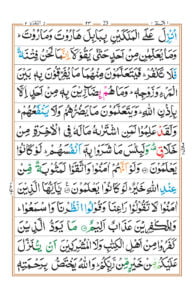 اُنْزِلَ عَلَى الْمَلَكَيْنِ بِبَابِلَ هَارُوْتَ وَمَارُوْتَ
وَمَا يُعَلِّمٰنِ مِنْ اَحَدٍ حَتّٰى يَقُوْلَاۤ اِنَّمَا نَحْنُ فِتْنَةٌ
فَلَا تَكْفُرْ فَيَتَعَلَّمُوْنَ مِنْهُمَا مَا يُفَرِّقُوْنَ بِهٖ بَيْنَ
الْمَرْءِ وَزَوْجِهٖ وَمَا هُمْ بِضَآرِّيْنَ بِهٖ مِنْ اَحَدٍ اِلَّا
بِاِذْنِ اللّٰهِ وَيَتَعَلَّمُوْنَ مَا يَضُرُّهُمْ وَلَا يَنْفَعُهُمْ
وَلَقَدْ عَلِمُوْا لَمَنِ اشْتَرٰىهُ مَا لَهٗ فِى الْاٰخِرَةِ مِنْ
خَلَاقٍ وَلَبِئْسَ مَا شَرَوْا بِهٖۤ اَنْفُسَهُمْ لَوْ كَانُوْا
يَعْلَمُوْنَ وَلَوْ اَنَّهُمْ اٰمَنُوْا وَاتَّقَوْا لَمَثُوْبَةٌ مِّنْ
عِنْدِ اللّٰهِ خَيْرٌ لَوْ كَانُوْا يَعْلَمُوْنَ يٰۤاَيُّهَا الَّذِيْنَ
اٰمَنُوْا لَا تَقُوْلُوْا رَاعِنَا وَقُوْلُوا انْظُرْنَا وَاسْمَعُوْا
وَلِلْكٰفِرِيْنَ عَذَابٌ اَلِيْمٌ مَا يَوَدُّ الَّذِيْنَ
كَفَرُوْا مِنْ اَهْلِ الْكِتٰبِ وَلَا الْمُشْرِكِيْنَ اَنْ يُّنَزَّلَ
عَلَيْكُمْ مِّنْ خَيْرٍ مِّنْ رَّبِّكُمْ وَاللّٰهُ يَخْتَصُّ بِرَحْمَتِهٖ